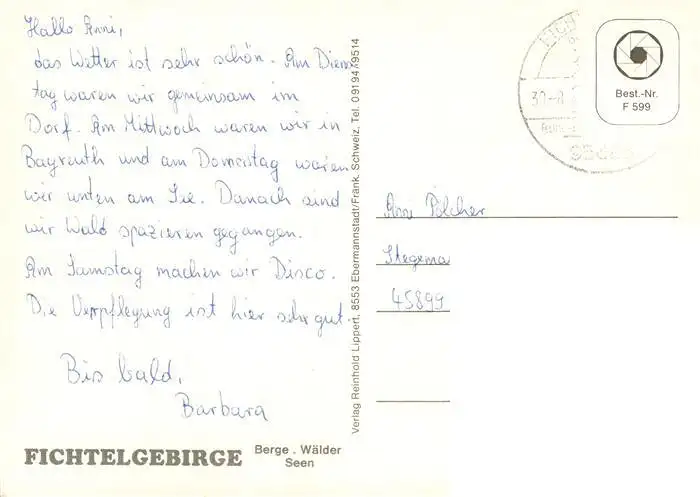 Hallo Anni,
das Wetter ist sehr schön. Am Diens
tag waren wir gemeinsam im
Dorf. Am Mittwoch waren wir in
Bayreuth und am Donnerstag waren
wir unten am See. Danach sind
wir Wald spazieren gegangen.
Am Samstag machen wir Disco.
Die Verpflegung ist hier sehr gut.
Bis bald,
Barbara
FICHTELGEBIRGE
Berge . Wälder
Seen
Verlag Reinhold Lippert, 8553 Ebermannstadt/Fränk. Schweiz, Tel. 09194/9514
Best.-Nr.
F 599
Anni Pölcher
Stegema
45899